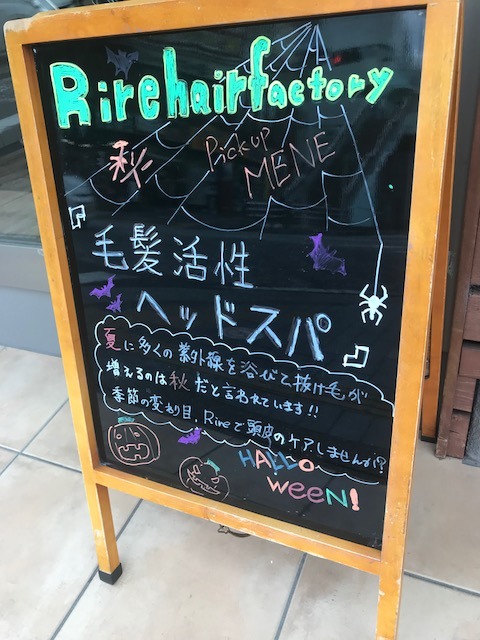 Rirehairfactory
秋
Pick up
MENE
『毛髪活性
ヘッドスパ』
夏に多くの紫外線を浴びて抜け毛が
増えるのは秋だと言われています!!
季節の変わり目、Rireで頭皮のケアしませんか!?
HALLO
WeeN!